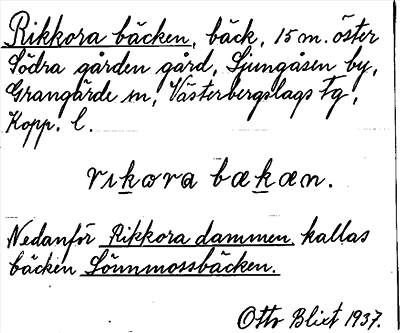 Rikkora bäcken, bäck, 15 m. öster
Södra gården gård, Ljungåsen by,
Grangärde sn, Västerbergslags Fg,
Kopp. l.
rikora bækæn.
Nedanför Rikkora dammen kallas
bäcken Sönnmossbäcken.
Otto Blixt 1937.